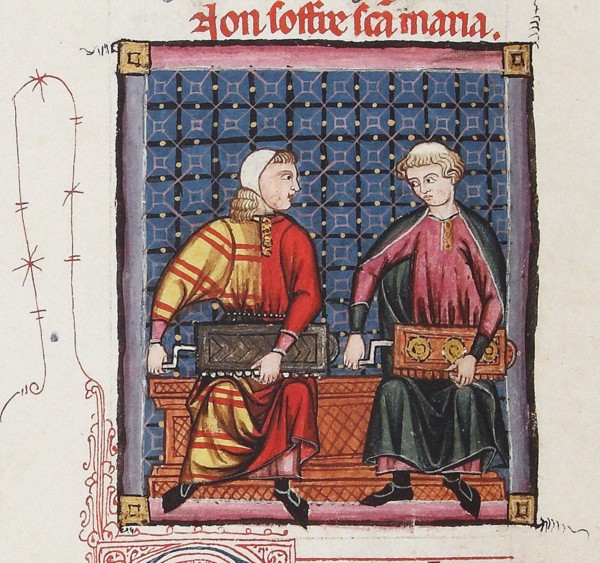 Non soffre scã maria.